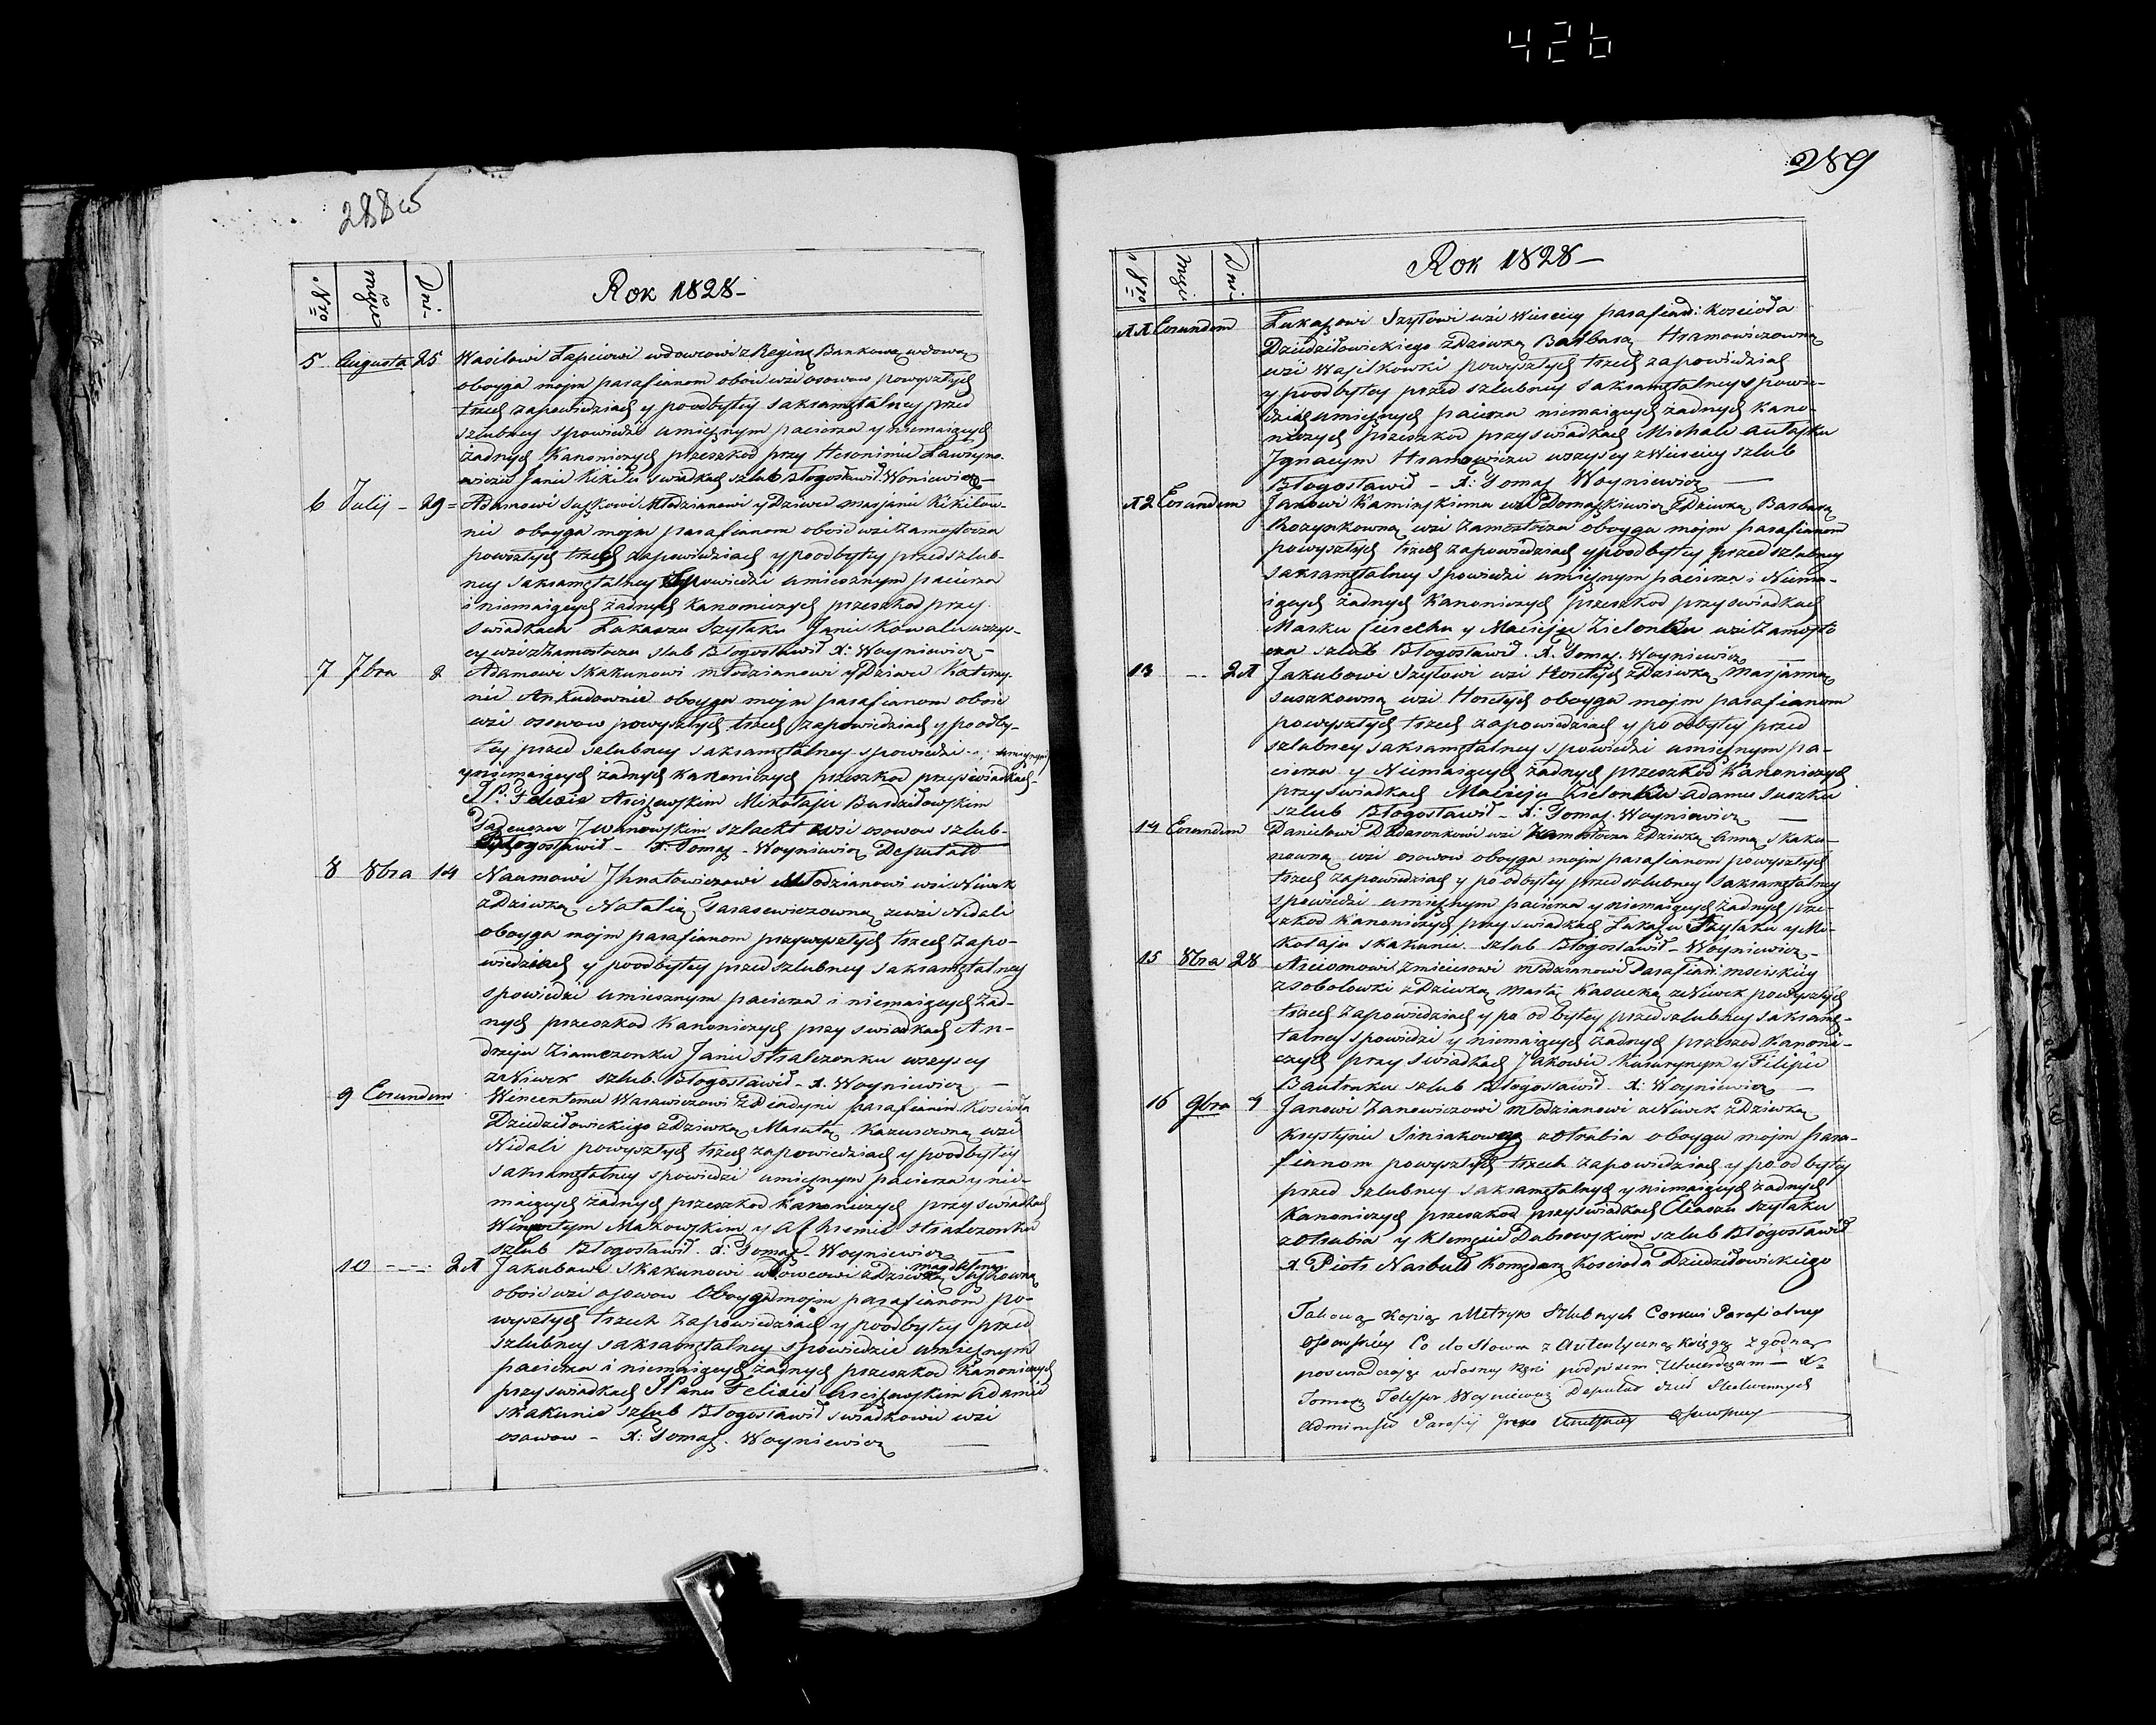 426
288
Nro
Dni
Rok 1828 –
5 Augusta 25 Wasilowi Łapciowi wdowcowi z Reginą Bankową wdową
oboyga mojm parafianom oboie wsi osowow powyszłych
trzech zapowiedziach y poodbytey sakramętalney przed
szlubney spowiedzi umieiętnym pacierza y niemaiących
żadnych Kanonicznych przeszkod przy Heronimie Ławryno-
wiczu Janie Kikilu swiadkach szlub Błogosławił Woniewicz –
6 Julij – 29 = Adamowi Młodzianowi y Dziewce Marjanie Kikiłow-
nie oboyga mojm parafianom oboie wsi Zamostocza
powyszłych trzech zapowiedziach y poodbytey przed szlub-
ney sakramętalney spowiedzi umiecznym pacierza
i niemaiących żadnych kanonicznych przeszkod przy
swiadkach Łukaszu Szytaku Janie Kowalu wszys-
cy wsi Zamostocza slub Błogosławił X: Woyniewicz –
7 7bra 8 Adamowi Skakunowi młodzianowi y Dziewce Katerzy-
nie Ankudownie oboyga mojm parafianom oboie
wsi osowow powyszłych trzech zapowiedziach y poodby-
tey przed szlubney sakramętalney spowiedzi
y niemaiących żadnych kanonicznych przeszkod przy swiadkach
JP: Felixie Arciszewskim Mikołaju Burdziłowskim
Tadeuszu Jwanowskim szlacht wsi osowow szlub –
Błogosławił – X: Tomasz – Woyniewicz Deputatt
8 8bra 14 Naumowi Jhnatowiczowi Młodzianowi wsi Niwek
z Dziewką Natalią Tarasewiczowną zewsi Nidali
oboyga mojm parafianom przy wyszłych trzech zapo-
wiedziach y poodbytey przed szlubney sakramętalney
spowiedzi umiecznym pacierza i niemaiących żad-
nych przeszkod Kanonicznych przy swiadkach An-
drzeju Ziamczonku Janie Stralczonku wszyscy
z Niwek szlub Błogosławił – X: Woyniewicz –
9 Eorundem Wincentemu Warawiczowi parafianin Koscioła
Dziedziłowickiego z Dziewką Marutą Kazurowną wsi
Nidali powyszłych trzech zapowiedziach y poodbytey
sakramętalney spowiedzi umieiętnym pacierza y nie-
maiących żadnych przeszkod Kanonicznych przy swiadkach
Wincętym Makowskim y Achremie Stralczonku
szlub Błogosławił X: Tomasz – Woyniewicz –
10 – – – 21 Jakubowi Skakunowi wdowcowi z Dziewką Magdaleną
oboie wsi osowow oboyga mojm parafianom po-
wyszłych trzech zapowiedziach y poodbytey przed
szlubney sakramętalney spowiedzie umieiętnym
pacierza i niemaiących żadnych przeszkod Kanonicznych
przy swiadkach JPanu Felixie Arciszewskim Adamie
Skakunie szlub Błogosławił swiadkowie wsi
osowow – X: Tomasz. Woyniewicz –
289
Nro
Dni
Rok 1828 –
11 Eorundem Łukaszowi Szyłowi wsi Wierecy parafian: Koscioła
Dziedziłowickiego z Dziewką Barbarą Hramowiczowną
wsi Wasilkowki powyszłych trzech zapowiedziach
y poodbytey przed szlubney sakramętalney spowie-
dzi umieiętnych pacierza niemaiących żadnych Kano-
nicznych przeszkod przy swiadkach Michale Autasku
Jgnacym Hramowiczu wszyscy z Wierecy szlub
Błogosławił – X: Tomasz Woyniewicz –
12 Eorundem Janowi Kaminskiemu wsi Domaszkiewicz z Dziewką Barbarą
wsi Zamostocza oboyga mojm parafianom
powyszłych trzech zapowiedziach y poodbytey przed szlubney
sakramętalney spowiedzi umieiętnym pacierza i Niema-
iących żadnych Kanonicznych przeszkod przy swiadkach
Marku Cierechu y Macieju Zielonku wsi Zamosto-
cza szlub Błogosławił. X. Tomasz. Woyniewicz –
13 – – 21 Jakubowi Szyłowi wsi z Dziewką Marjanną
Suszkowną wsi oboyga mojm parafianom
powyszłych trzech zapowiedziach y po odbytey przed
szlubney sakramętalney spowiedzi umieiętnym pa-
cierza y Niemaiących żadnych przeszkod Kanonicznych
przy swiadkach Macieju Zielonku Adamu Suszku
szlub Błogosławił – X: Tomasz. Woyniewicz –
14 Eorundem Danielowi wsi Zamostocza z Dziewką Anną Skaku-
nowną wsi osowow oboyga mojm parafianom powyszłych
trzech zapowiedziach y po odbytey przed szlubney sakramętalney
spowiedzi umieiętnym pacierza y niemaiących żadnych prze-
szkod Kanonicznych przy swiadkach Łukaszu Szytaku y Mi-
kołaju Skakunie szlub Błogosławił – Woyniewicz –
15 8bra 28 Arciomowi Zmiciesowi młodzianowi Parafian: msciskiey
z Sobolowki z Dziewką Martą Kasucką z Niwek powyszłych
trzech zapowiedziach y po odbytey przed szlubney sakramę-
talney spowiedzi y niemaiących żadnych przeszkod Kanoni-
cznych przy swiadkach Jakowie y Filipie
Bautruku szlub Błogosławił. X: Woyniewicz –
16 9bra 4 Janowi Zanowiczowi młodzianowi z Niwek z Dziewką
Krystynie Siniakową z Otrubia oboyga mojm para-
fianom powyszłych trzech zapowiedziach y po odbytey
przed szlubney sakramętalnych y niemaiących żadnych
Kanonicznych przeszkod przy swiadkach Eliaszu Szytaku
z Otrubia y Klemęcie Dubrowskim szlub Błogosławił
X. Piotr Narbutt Komędarz Koscioła Dziedziłowickiego
Takową Kopią Metryk Szlubnych Cerkwi Parafialney
Osowskiey Co do słowa z Autentyczną Księgą zgodną
poswiadczając własney ręki podpisem Utwierdzam – X
Tomasz Telesfor Woyniewicz Deputat
Parafij Osowskiey